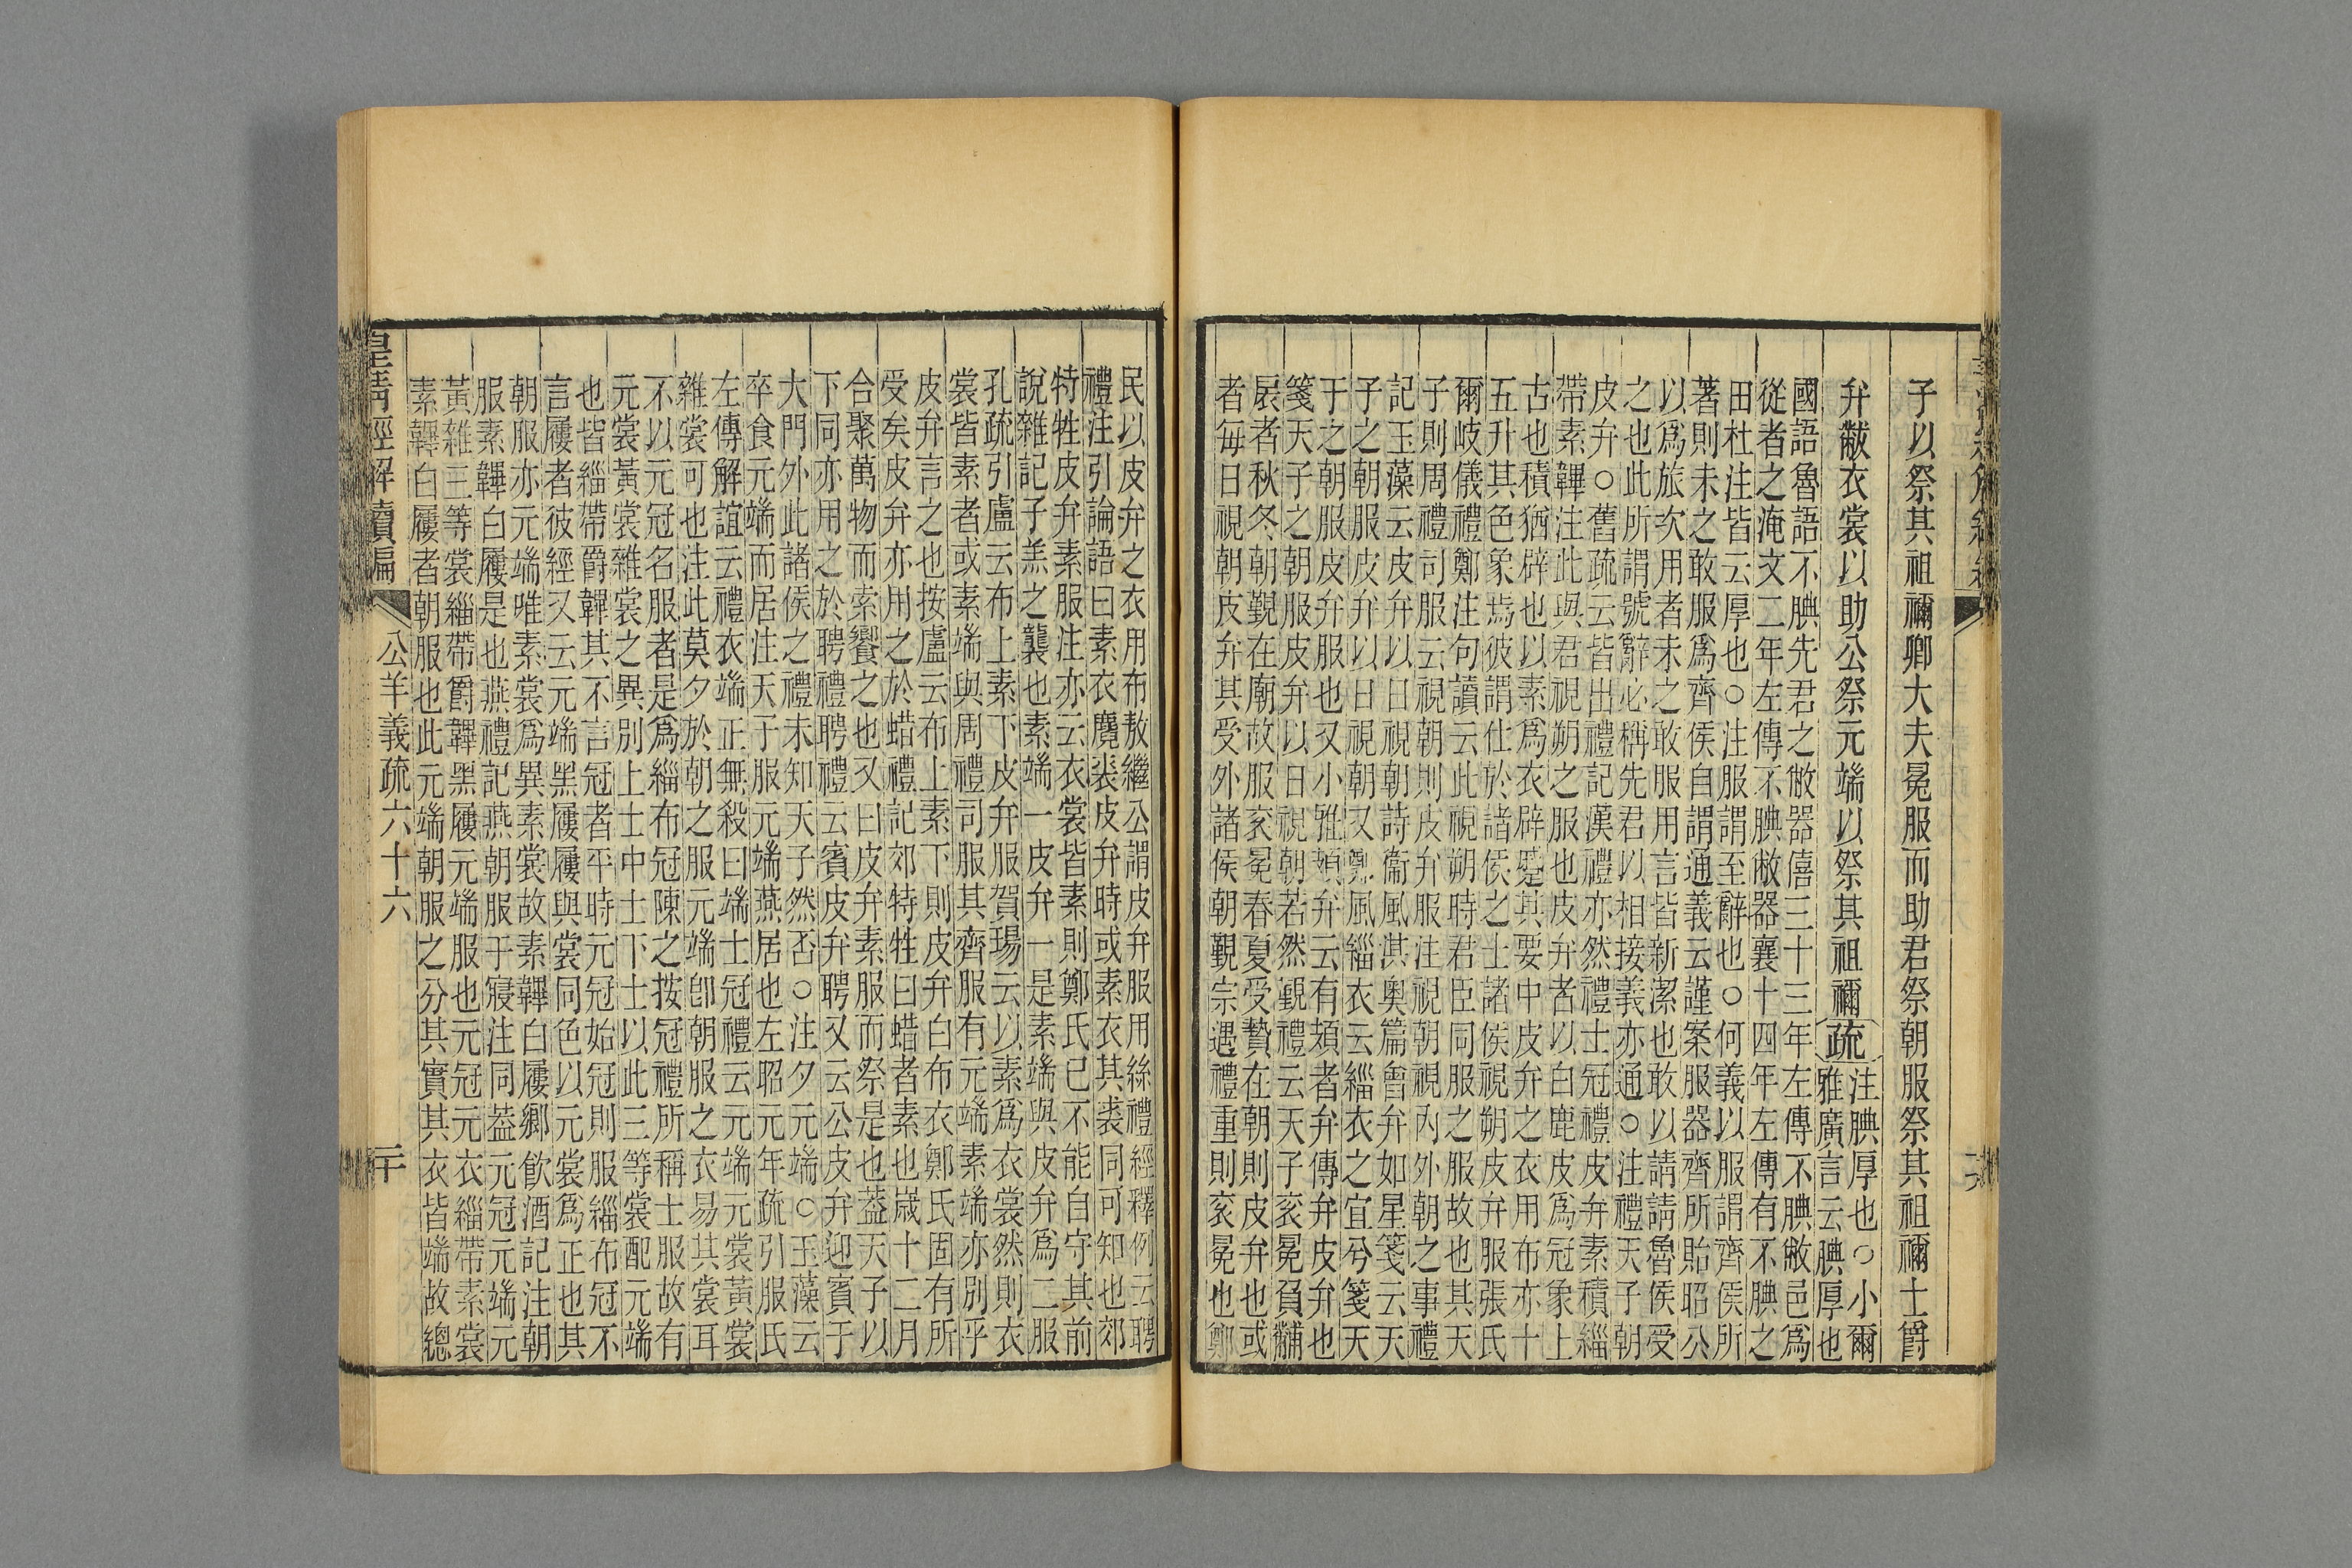 子以祭其祖禰卿大夫冕服而助君祭朝服祭其祖禰士爵
弁黻衣裳以助公祭元端以祭其祖禰疏
注腆厚也○小爾
雅廣言云腆厚也
國語魯語不腆先君之敝器僖三十三年左傳不腆敝邑爲
從者之淹文二年左傳不腆敝器襄十四年左傳有不腆之
田杜注皆云厚也○注服謂至辭也○何義以服謂齊侯所
著則未之敢服爲齊侯自謂通義云謹案服器齊所貽昭公
以爲旅次用者未之敢服用言皆新潔也敢以請請魯侯受
之也此所謂號辭必稱先君以相接義亦通○注禮天子朝
皮弁○舊疏云皆出禮記漢禮亦然禮士冠禮皮弁素積緇
帶素韠注此與君視朔之服也皮弁者以白鹿皮爲冠象上
古也積猶辟也以素爲衣辟蹙其要中皮弁之衣用布亦十
五升其色象焉彼謂仕於諸侯之士諸侯視朔皮弁服張氏
爾岐儀禮鄭注句讀云此視朔時君臣同服之服故也其天
子則周禮司服云視朝則皮弁服注視朝視內外朝之事禮
記玉藻云皮弁以日視朝詩衞風淇奧篇會弁如星箋云天
子之朝服皮弁以日視朝又鄭風緇衣云緇衣之宜兮箋天
于之朝服皮弁服也又小雅頍弁云有頍者弁傳弁皮弁也
箋天子之朝服皮弁以日視朝若然覲禮云天子衮冕負黼
扆者秋冬朝覲在廟故服衮冕春夏受贄在朝則皮弁也或
者每日視朝皮弁其受外諸侯朝覲宗遇禮重則衮冕也鄭
民以皮弁之衣用布敖繼公謂皮弁服用絲禮經釋例云聘
禮注引論語曰素衣麑裘皮弁時或素衣其裘同可知也郊
特牲皮弁素服注亦云衣裳皆素則鄭氏已不能自守其前
說雜記子羔之襲也素端一皮弁一是素端與皮弁爲二服
孔疏引盧云布上素下皮弁服賀瑒云以素爲衣裳然則衣
裳皆素者或素端與周禮司服其齊服有元端素端亦別乎
皮弁言之也按盧云布上素下則皮弁白布衣鄭氏固有所
受矣皮弁亦用之於蜡禮記郊特牲曰蜡者素也嵗十二月
合聚萬物而索饗之也又曰皮弁素服而祭是也葢天子以
下同亦用之於聘禮聘禮云賓皮弁聘又云公皮弁迎賓于
大門外此諸侯之禮未知天子然否○注夕元端○玉藻云
卒食元端而居注天子服元端燕居也左昭元年疏引服氏
左傳解誼云禮衣端正無殺曰端士冠禮云元端元裳黃裳
雜裳可也注此莫夕於朝之服元端卽朝服之衣易其裳耳
不以元冠名服者是爲緇布冠陳之按冠禮所稱士服故有
元裳黃裳雜裳之異別上士中士下士以此三等裳配元端
也皆緇帶爵韠其不言冠者平時元冠始冠則服緇布冠不
言屨者彼經又云元端黑屨屨與裳同色以元裳爲正也其
朝服亦元端唯素裳爲異素裳故素韠白屨鄉飮酒記注朝
服素韠白屨是也燕禮記燕朝服于寢注同葢元冠元端元
黃雜三等裳緇帶爵韠黑屨元端服也元冠元衣緇帶素裳
素韠白屨者朝服也此元端朝服之分其實其衣皆端故總
皇淸經解續編
公羊義疏六十六
二十